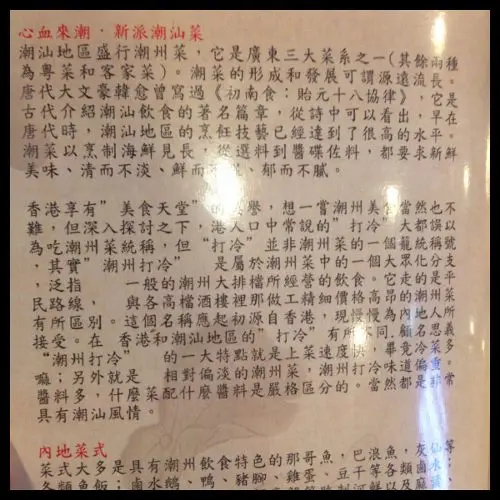 心血來潮．新派潮汕菜
潮汕地區盛行潮州菜，它是廣東三大菜系之一(其餘兩種
為粵菜和客家菜)。潮菜的形成和發展可謂源遠流長。
唐代大文豪韓愈曾寫過《初南食：貽元十八協律》，它是
古代介紹潮汕飲食的著名篇章，從詩中可以看出，早在
唐代時，潮汕地區的烹飪技藝已經達到了很高的水平。
潮菜以烹制海鮮見長，從選料到醬碟佐料，都要求新鮮
美味、清而不淡、鮮而不、郁而不膩。
香港享有”美食天堂”的譽，想一嘗潮州美食當然也不
難，但深入探討之下，港人口中常說的”打冷”大都誤以
為吃潮州菜統稱，但“打冷”並非潮州菜的一個籠統稱號
，其實”潮州打冷” 是屬於潮州菜中的一個大眾化分支
，泛指 一般的潮州大排檔所經營的飲食。它走的是平
民路線， 與各高檔酒樓裡那做工精細價格高昂的潮州菜
有所區別。這個名稱應起初源自香港，現慢慢為內地人所
接受。在 香港和潮汕地區的”打冷”有所不同.顧名思義
“潮州打冷” 的一大特點就是上菜速度快，畢竟冷菜多
嘛；另外就是 相對偏淡的潮州菜，潮州打冷味道偏重
醬料多，什麼菜配什麼醬料是嚴格區分的。當然都是非常
具有潮汕風情。
內地菜式
菜式大多是具有潮州飲食特色的那哥魚，巴浪魚，灰鹵仙等
各類魚飯；鹵水鵝、鴨、豬腳、雞蛋、豆干等各類鹵水